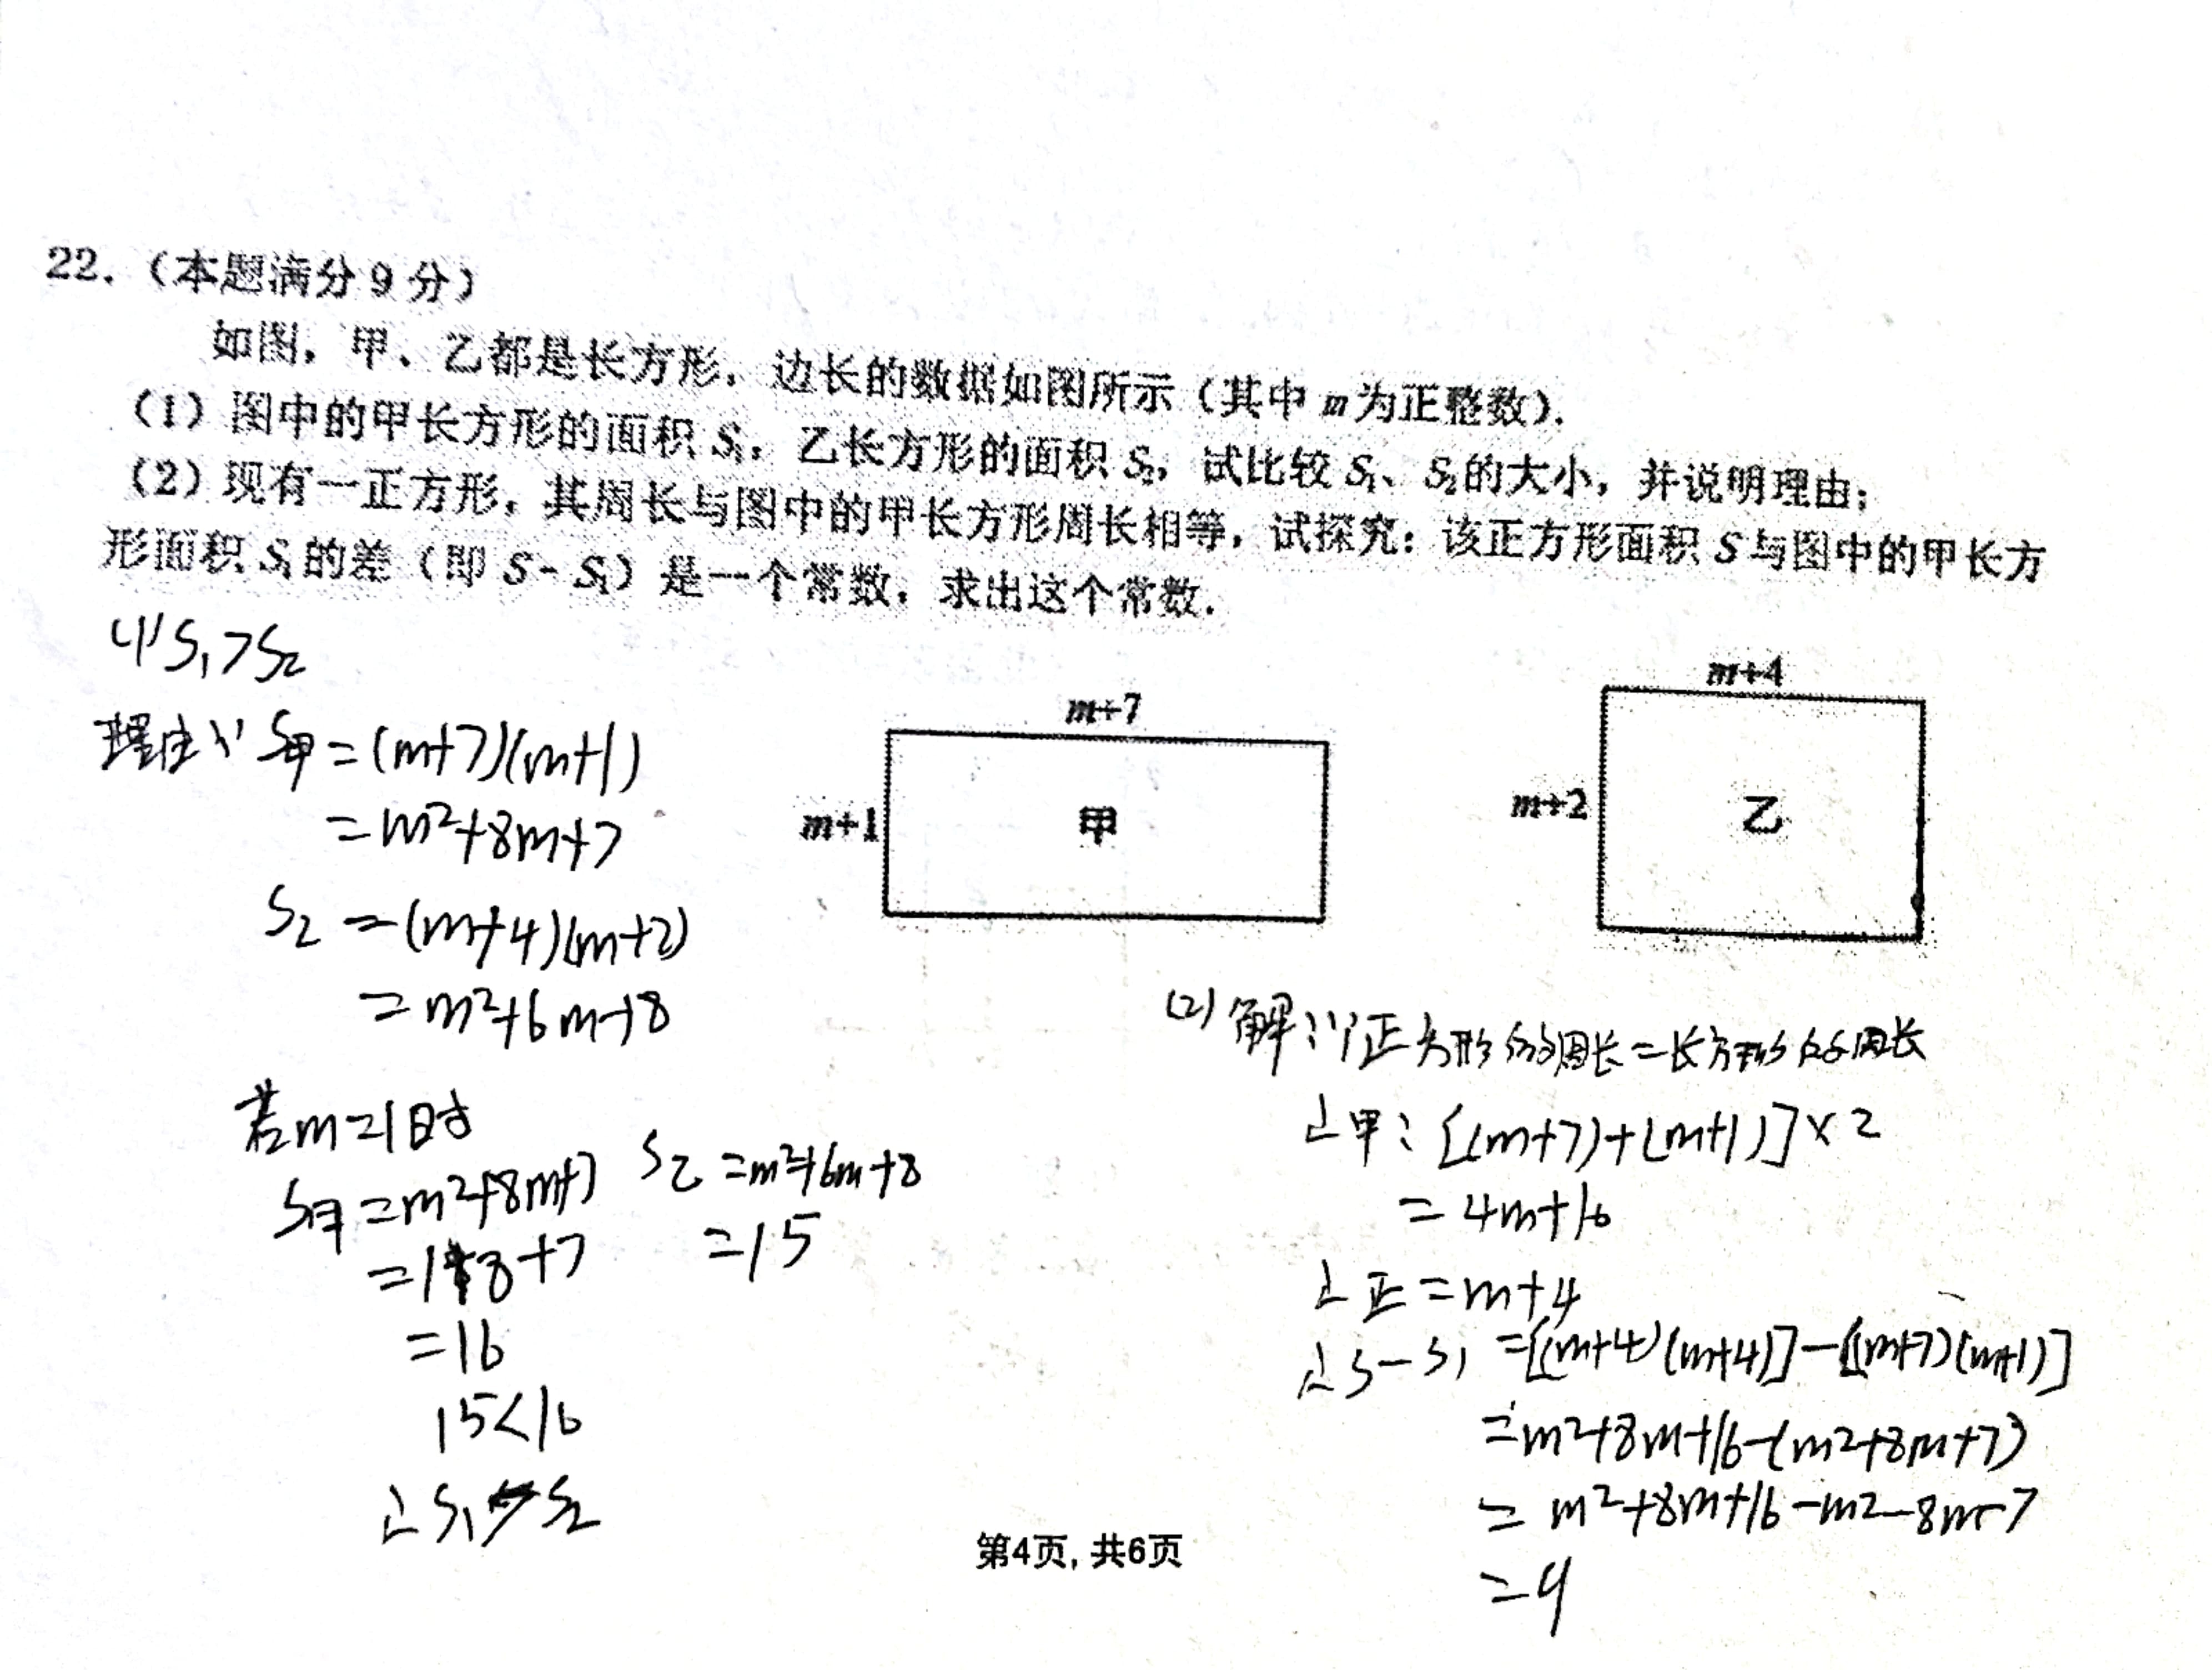 22.（本题满分9分）
如图，甲、乙都是长方形，边长的数据如图所示（其中m为正整数）.
（1）图中的甲长方形的面积S₁，乙长方形的面积S₂，试比较S₁、S₂的大小，并说明理由；
（2）现有一正方形，其周长与图中的甲长方形周长相等，试探究：该正方形面积S与图中的甲长方
形面积S₁的差（即S-S₁）是一个常数，求出这个常数.
(1) S₁>S₂
理由∵ S甲=(m+7)(m+1)
=m²+8m+7
S₂=(m+4)(m+2)
=m²+6m+8
若m=1时
S甲=m²+8m+7
=1+8+7
=16
S乙=m²+6m+8
=15
15<16
∴S₁>S₂
m+7
m+1
甲
m+4
m+2
乙
(2) 解:∵正方形的周长=长方形的周长
∴甲: [(m+7)+(m+1)]×2
=4m+16
∴正=m+4
∴S-S₁=[(m+4)(m+4)]-[(m+7)(m+1)]
=m²+8m+16-(m²+8m+7)
=m²+8m+16-m²-8m-7
=9
第4页, 共6页